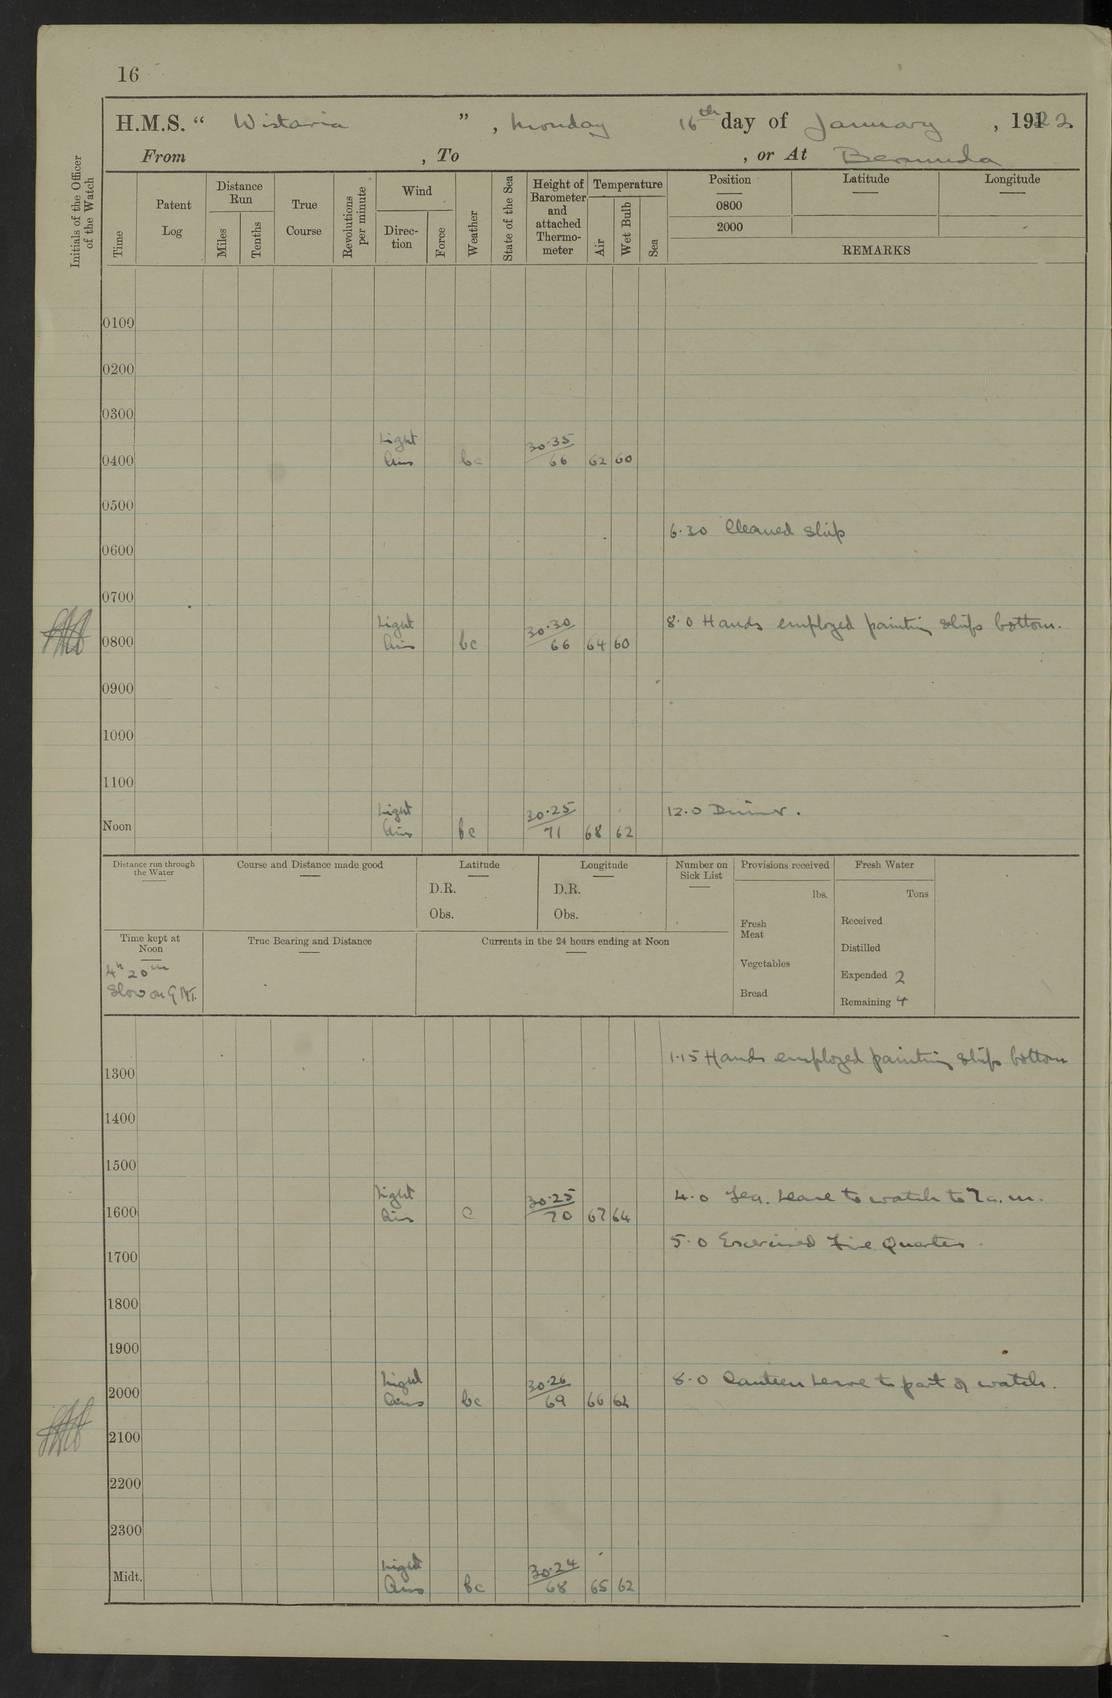 16
H.M.S. " Wistaria " , Monday 16th day of January , 1922
From , To , or At Bermuda
Initials of the Officer of the Watch
Time
Patent Log
Distance Run
Miles
Tenths
True Course
Revolutions per minute
Wind
Direc-tion
Force
Weather
State of the Sea
Height of Barometer and attached Thermo-meter
Temperature
Air
Wet Bulb
Sea
Position
Latitude
Longitude
0800
2000
REMARKS
0100
0200
0300
0400 Light Airs bc 30.35 66 62 60
0500
6.30 Cleaned ship
0600
0700
8.0 Hands employed painting ships bottom.
0800 Light Airs bc 30.30 66 64 60
0900
1000
1100
12.0 Dinner.
Noon Light Airs bc 30.25 71 68 62
Distance run through the Water
Course and Distance made good
Latitude
D.R.
Obs.
Longitude
D.R.
Obs.
Number on Sick List
Provisions received
lbs.
Fresh Meat
Vegetables
Bread
Fresh Water
Tons
Received
Distilled
Expended 2
Remaining 4
Time kept at Noon
4h 20m
Slow on G.M.T.
True Bearing and Distance
Currents in the 24 hours ending at Noon
1.15 Hands employed painting ships bottom
1300
1400
1500
4.0 Tea. Leave to watch to 7 a.m.
1600 Light Airs c 30.25 70 67 64
5.0 Exercised Fire Quarters.
1700
1800
1900
8.0 Canteen Leave to part of watch.
2000 Light Airs bc 30.26 69 66 62
2100
2200
2300
Midt. Light Airs bc 30.24 68 65 62